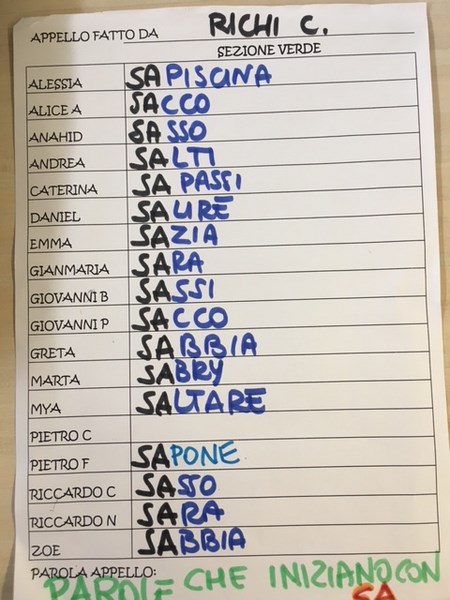 APPELLO FATTO DA RICHI C.
SEZIONE VERDE
ALESSIA SAPISCINA
ALICE A SACCO
ANAHID SASSO
ANDREA SALTI
CATERINA SA PASSI
DANIEL SAURE
EMMA SAZIA
GIANMARIA SARA
GIOVANNI B SASSI
GIOVANNI P SACCO
GRETA SABBIA
MARTA SABRY
MYA SALTARE
PIETRO C
PIETRO F SAPONE
RICCARDO C SASSO
RICCARDO N SARA
ZOE SABBIA
PAROLA APPELLO:
PAROLE CHE INIZIANO CON
SA